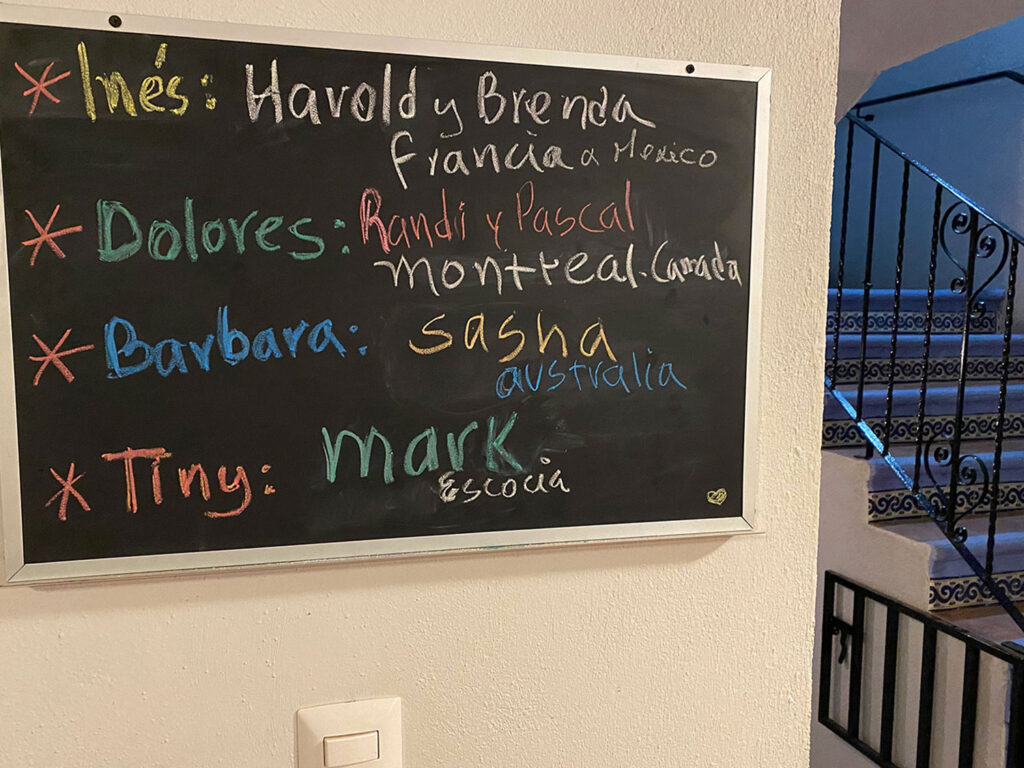 * Inés: Harold y Brenda
Francia a Mexico
* Dolores: Randi y Pascal
montreal. Canada
* Barbara: sasha
australia
* Tiny: mark
Escocia